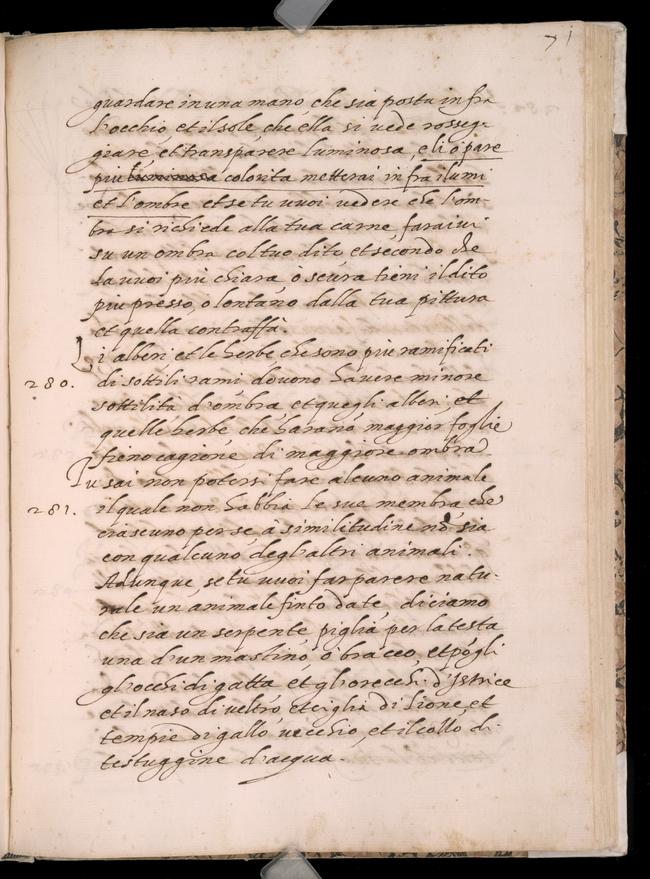 71
guardare in una mano, che sia posta infra
l'occhio, et il sole, che ella si vede rosseg=
giare, et transparere luminosa, e li o pare
piu luminosa colorita metterai infra i lumi
et l'ombre et se tu vuoi vedere che l'om=
bra si richiede alla tua carne, faraivi
su un ombra col tuo dito, et secondo che
la vuoi piu chiara, o scura tieni il dito
piu presso, o lontano dalla tua pittura
et quella contraffà.
Li alberi et le herbe che sono piu ramificati
280. di sottili rami devono havere minore
sottilità d'ombra, et quegli alberi et
quelle herbe che harano maggior foglie
fieno cagione di maggiore ombra.
Tu sai non potersi fare alcuno animale
281. il quale non habbia le sue membra, che
ciascuno per se, à similitudine nō sia
con qualcuno degl'altri animali.
Adunque, se tu vuoi far parere natu=
rale un'animale finto date, diciamo
che sia un serpente, piglia per la testa
una d'un mastino, ò bracco, et pōgli
gl'occhi di gatta et gl'orecchi d'Istrice
et il naso di veltro et ciglia di lione, et
tempie di gallo vecchio, et il collo di
testuggine d'acqua.